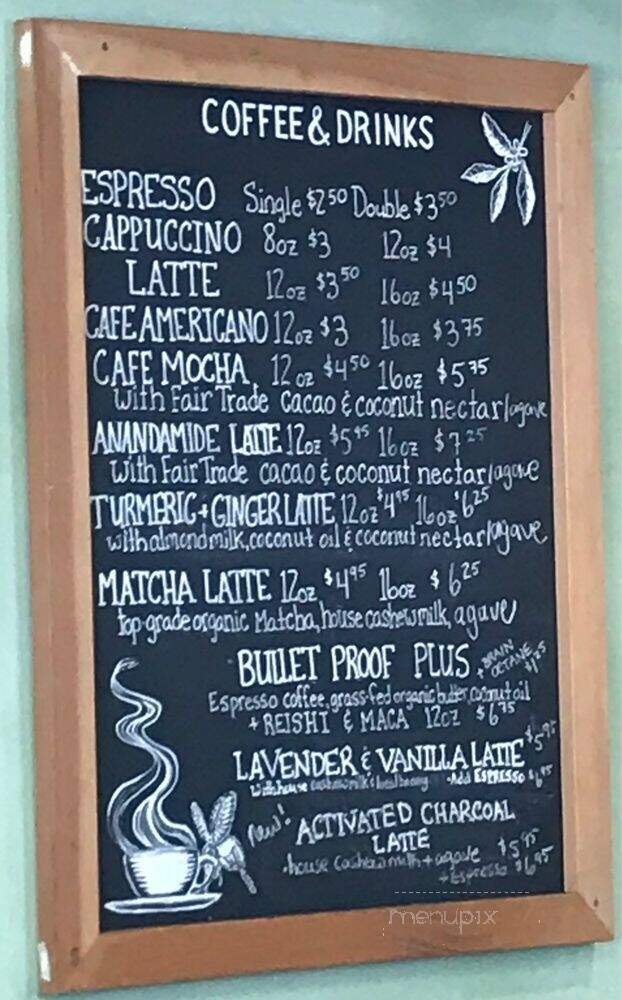 COFFEE & DRINKS
ESPRESSO Single $2.50 Double $3.50
CAPPUCCINO 8oz $3 12oz $4
LATTE 12oz $3.50 16oz $4.50
CAFE AMERICANO 12oz $3 16oz $3.75
CAFE MOCHA 12oz $4.50 16oz $5.75
With Fair Trade cacao & coconut nectar/agave
ANANDAMIDE LATTE 12oz $5.95 16oz $7.25
With Fair Trade cacao & coconut nectar/agave
TURMERIC + GINGER LATTE 12oz $4.95 16oz $6.25
with almond milk, coconut oil & coconut nectar/agave
MATCHA LATTE 12oz $4.95 16oz $6.25
top-grade organic Matcha, house cashew milk, agave
BULLET PROOF PLUS + BRAIN OCTANE $1.25
Espresso coffee, grass-fed organic butter, coconut oil
+ REISHI & MACA 12oz $6.75
LAVENDER & VANILLA LATTE $5.95
With house cashew milk & local honey -Add ESPRESSO $6.95
new! ACTIVATED CHARCOAL
LATTE
house cashew milk + agave $5.95
+ Espresso $6.95
menupix